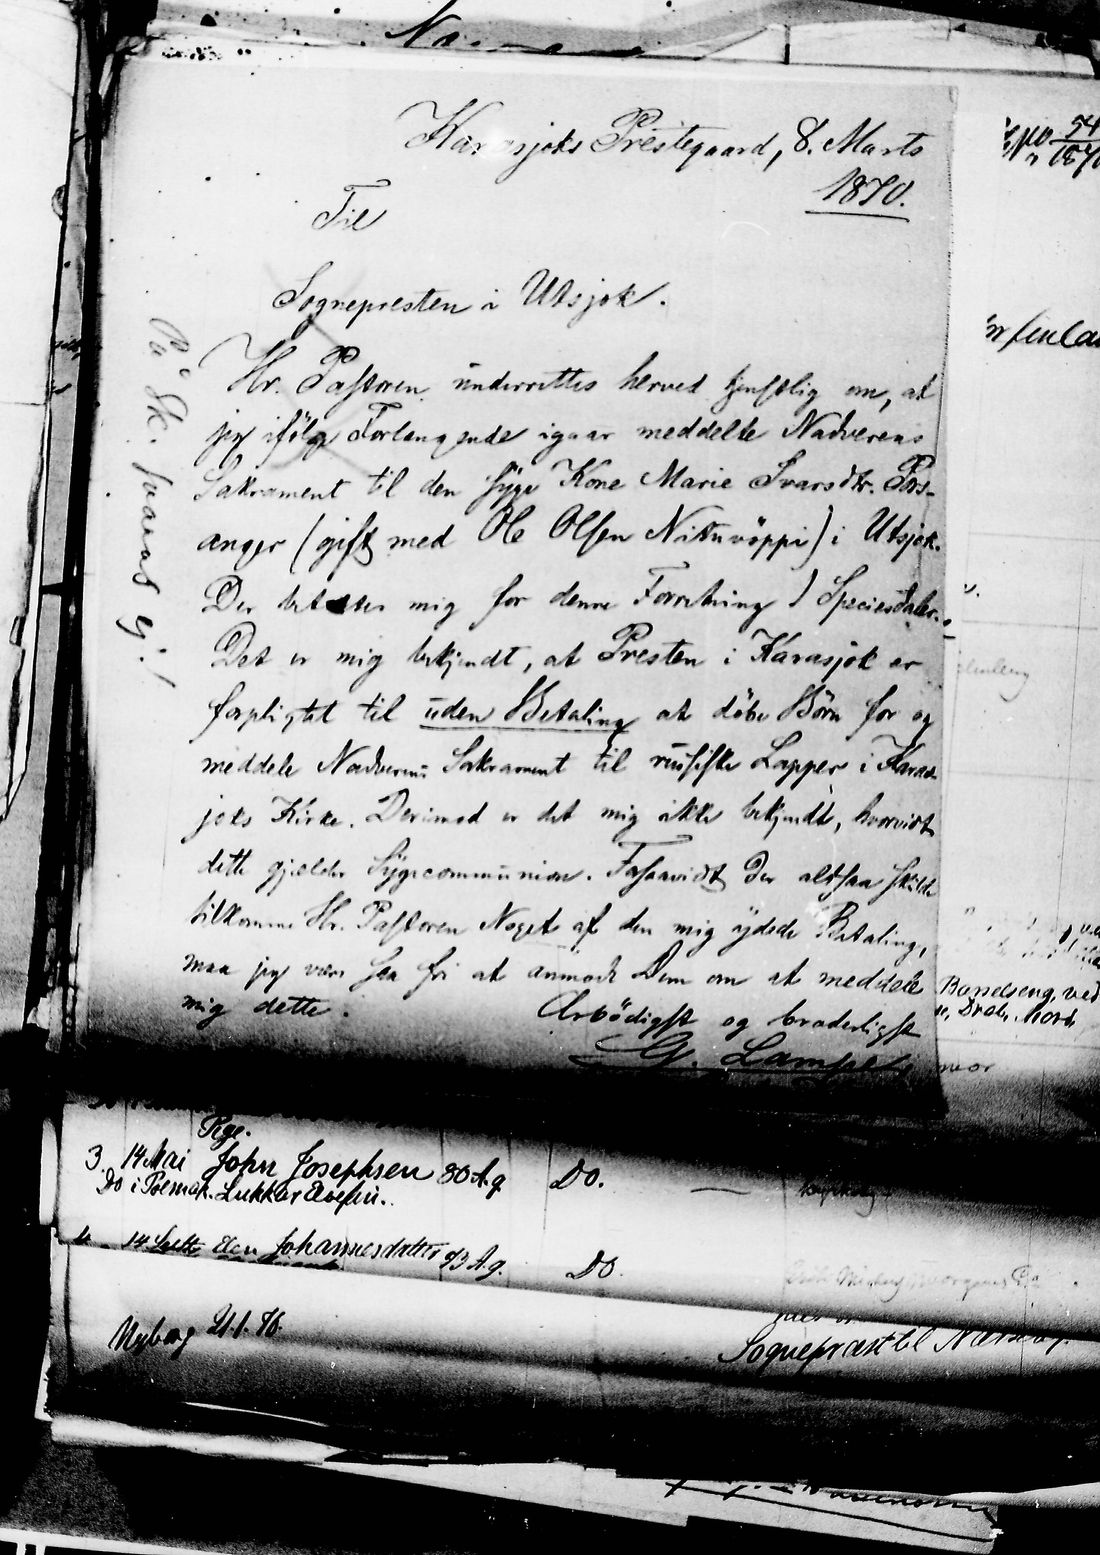 Karasjoks Prestegaard, 8. Marts
1870.
Til
Sognepresten i Utsjok.
Hr. Pastoren underrettes herved tjenstlig om, at
jeg ifölge Forlangende igaar meddelte Nadverens
Sakrament til den syge Kone Marie Ivarsdtr. Pors-
anger (gift med Ole Olsen Nittuvöppi) i Utsjok.
Der betaltes mig for denne Forretning 1 Speciesdaler.
Det er mig bekjendt, at Presten i Karasjok er
forpligtet til uden Betaling at döbe Börn for og
meddele Nadverens Sakrament til russiske Lapper i Karas-
joks Kirke. Derimod er det mig ikke bekjendt, hvorvidt
dette gjelder Sygecommunion. Forsaavidt der altsaa skulde
tilkomme Hr. Pastoren Noget af den mig ydede Betaling,
maa jeg være saa fri at anmode Dem om at meddele
mig dette.
Ærbödigst og broderligst
G. Lampe
På Sk. svarad ej!
54
Barselseng, ved
3. 14 Mai John Josephsen 80 Ag. Do.
Do i Polmak.
14 Johannesdatter Ag. Do.
Nyborg 21.1.76.
Sognepræst til